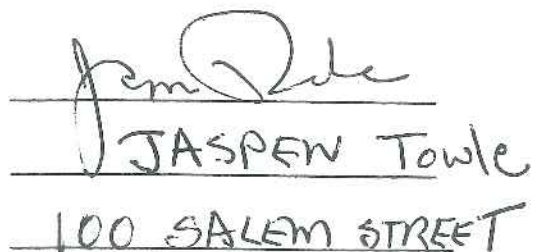 JASPEN Towle
100 SALEM STREET